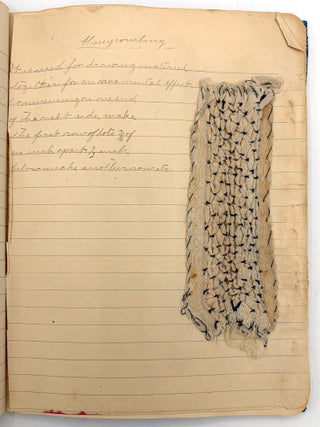 Honeycombing
It is used for drawing material
together for an ornamental effect
Commencing on one end
of the right side, make
the first row of dots 3/4 of
an inch apart 1/2 inch
below make another row etc.